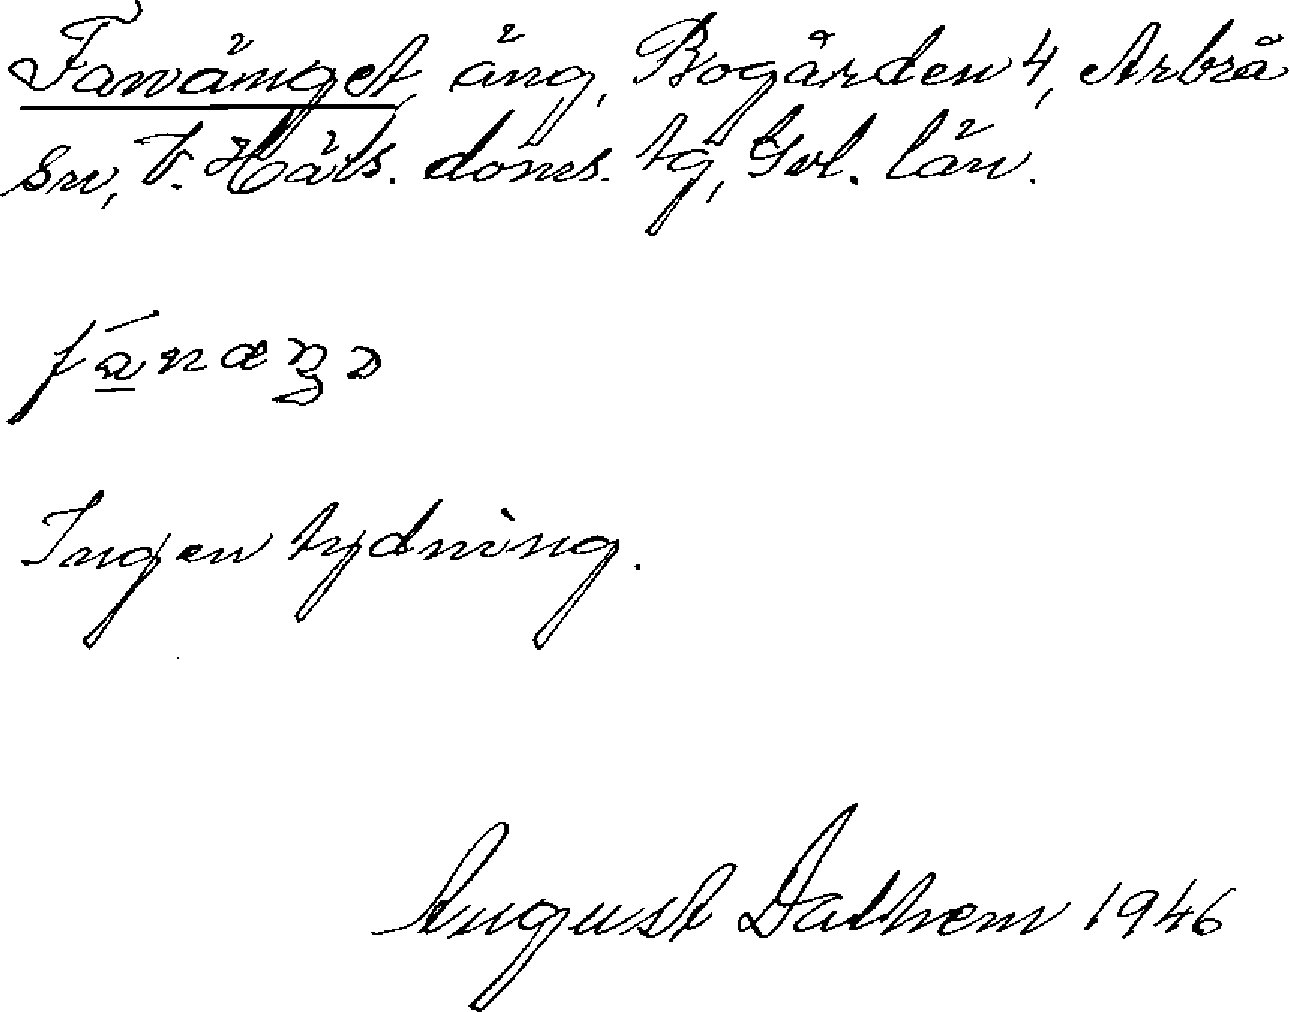 Fanänget, äng, Bogården 4, Arbrå
sn, V. Häls. doms. tg, Gvl. län.
fánæŋə
Ingen tydning.
August Dalhem 1946